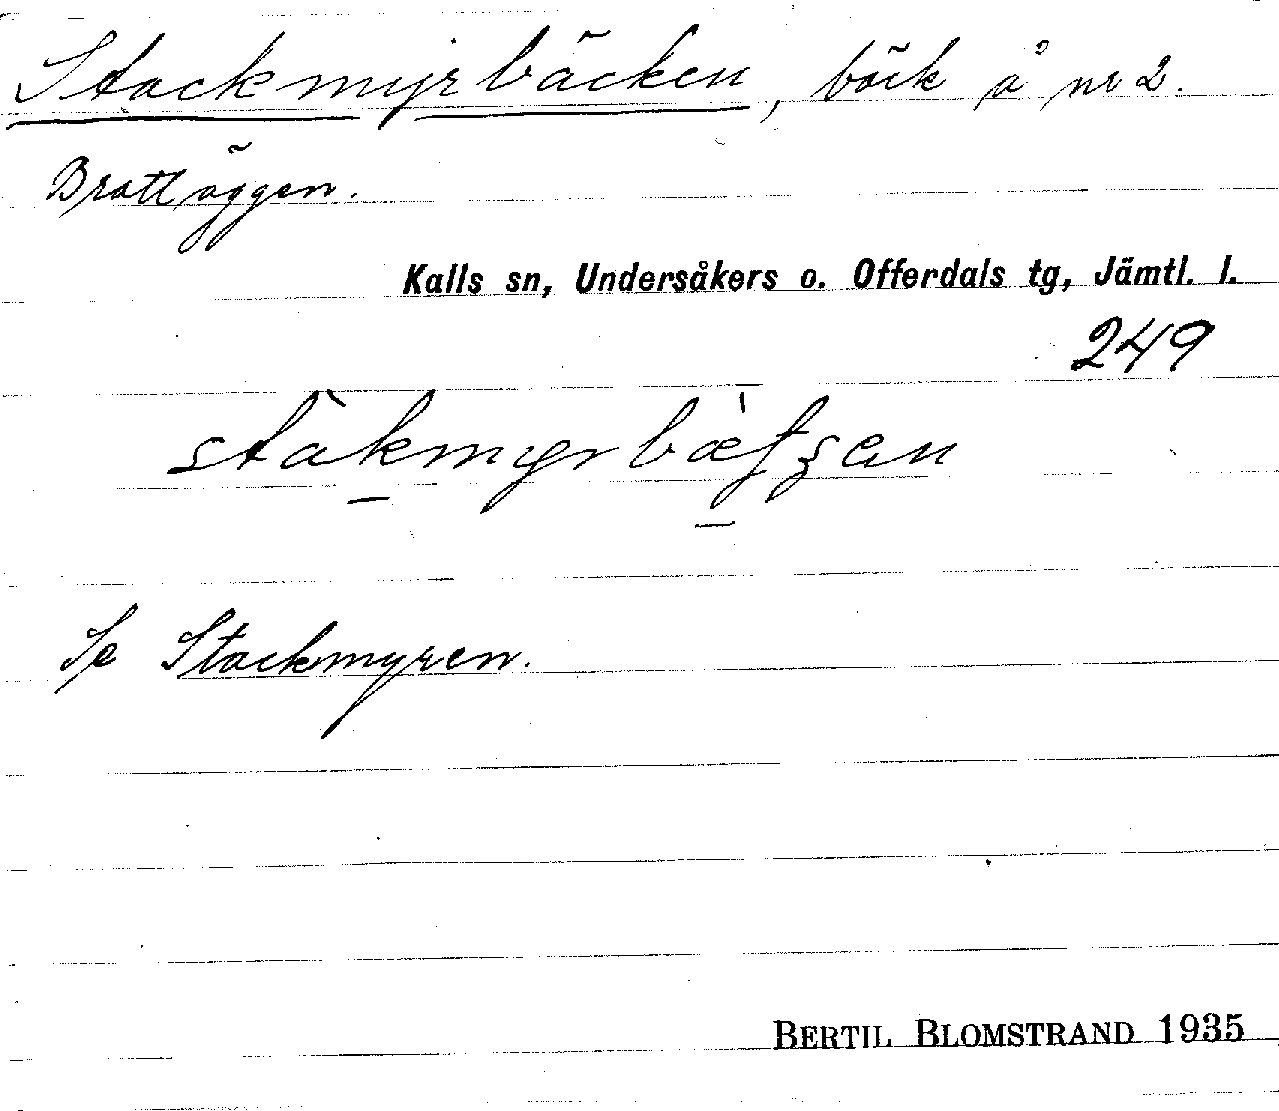 Stackmyrbäcken, bäck å nr 2.
Brattäggen.
Kalls sn, Undersåkers o. Offerdals tg, Jämtl. l.
249
Se Stackmyren.
BERTIL BLOMSTRAND 1935